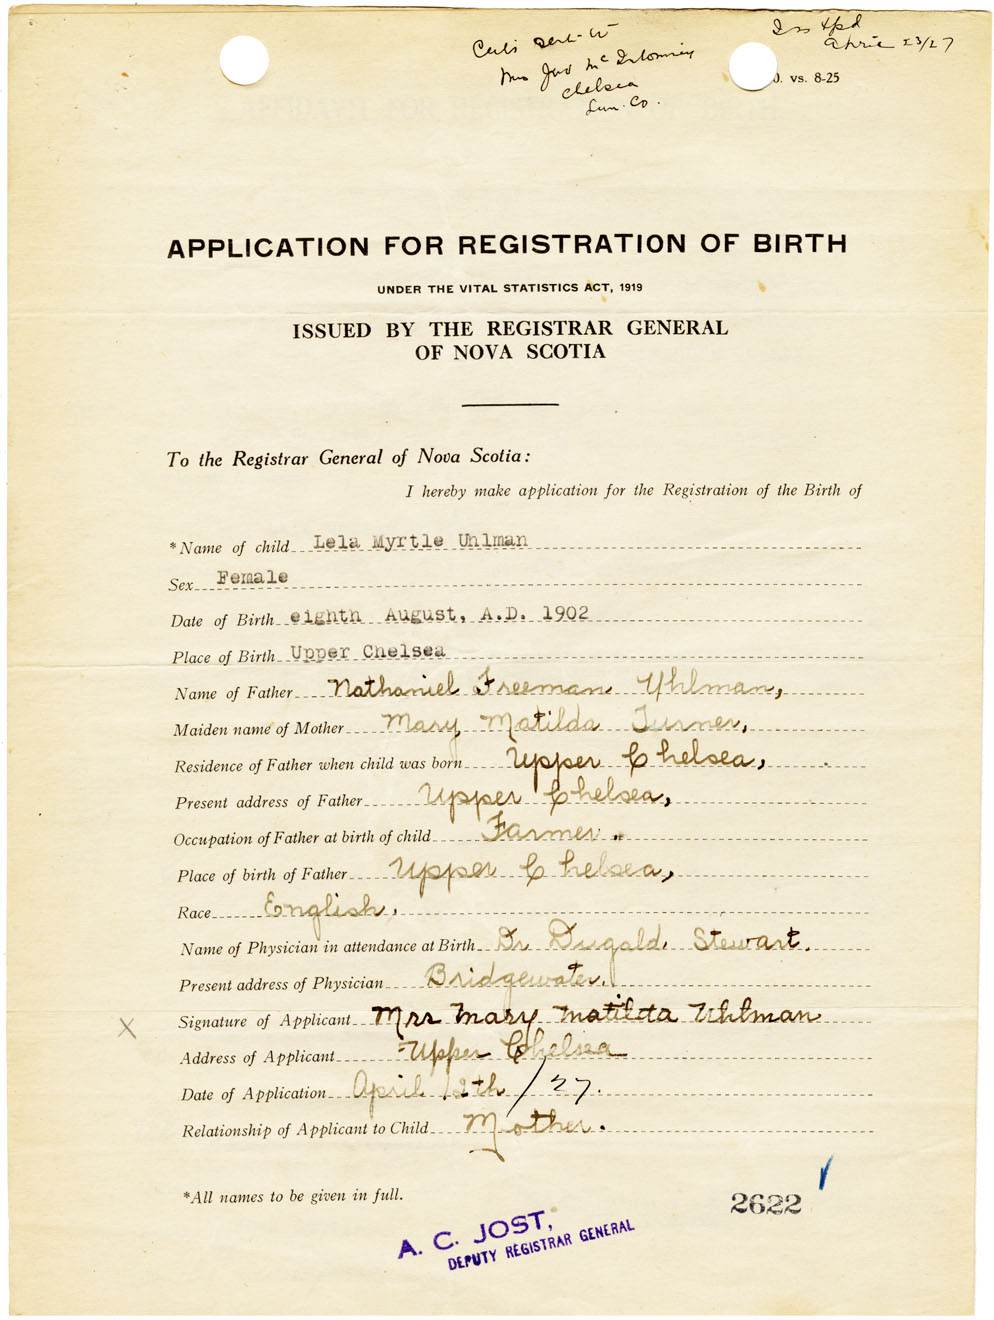 Certi sent to
Mrs Jas Mc
Chelsea
Lun. Co.
Iss &pd
April 23/27
O. vs. 8-25
APPLICATION FOR REGISTRATION OF BIRTH
UNDER THE VITAL STATISTICS ACT, 1919
ISSUED BY THE REGISTRAR GENERAL
OF NOVA SCOTIA
To the Registrar General of Nova Scotia:
I hereby make application for the Registration of the Birth of
*Name of child Lela Myrtle Uhlman
Sex Female
Date of Birth eighth August, A.D. 1902
Place of Birth Upper Chelsea
Name of Father Nathaniel Freeman Uhlman,
Maiden name of Mother Mary Matilda Turner,
Residence of Father when child was born Upper Chelsea,
Present address of Father Upper Chelsea,
Occupation of Father at birth of child Farmer.
Place of birth of Father Upper Chelsea,
Race English.
Name of Physician in attendance at Birth Dr Dugald. Stewart.
Present address of Physician Bridgewater.
X Signature of Applicant Mrs Mary Matilda Uhlman
Address of Applicant Upper Chelsea
Date of Application April 12th /27.
Relationship of Applicant to Child Mother.
*All names to be given in full.
2622
A. C. JOST,
DEPUTY REGISTRAR GENERAL